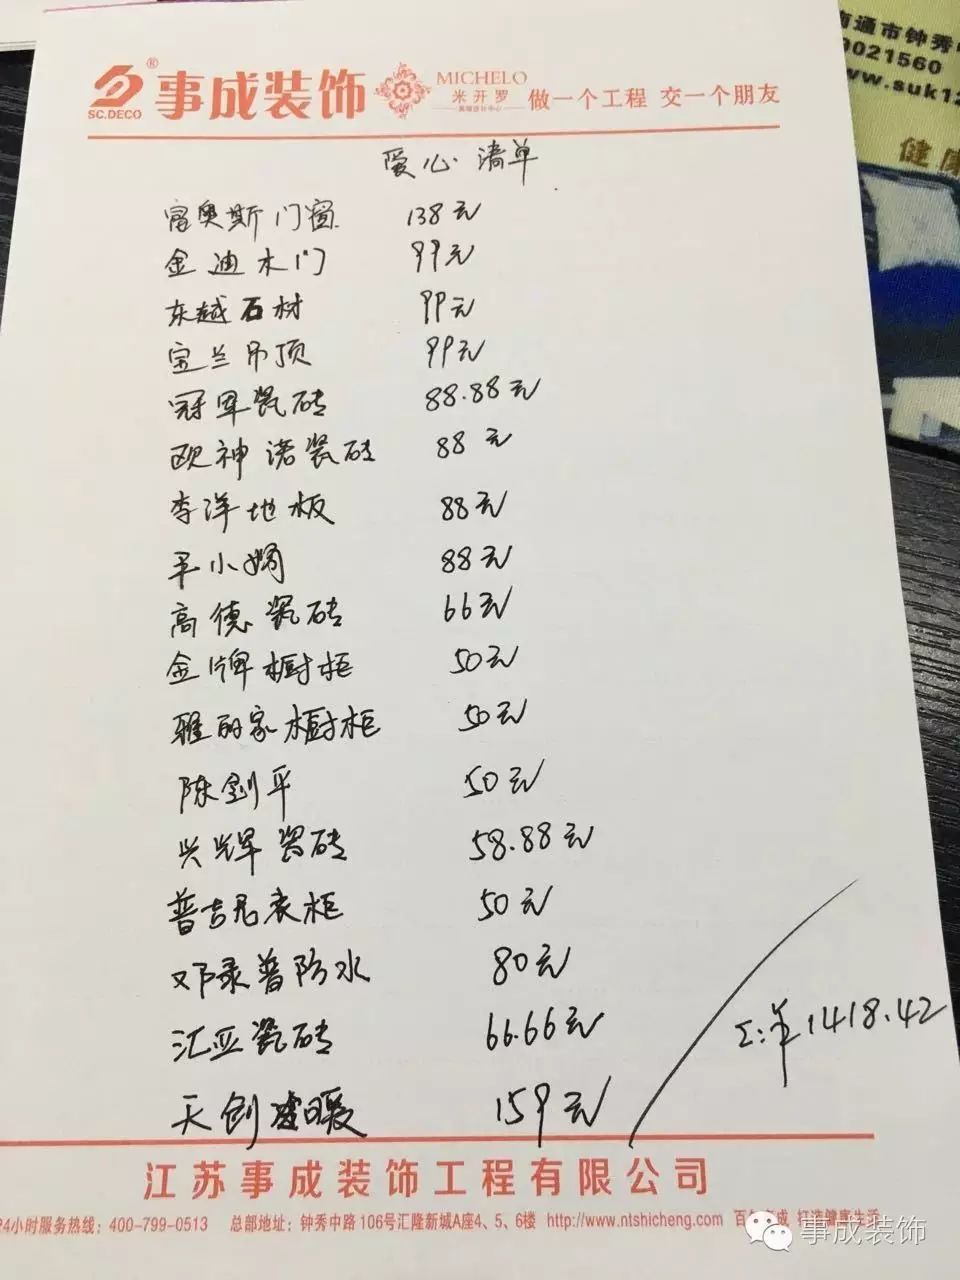 南通市钟秀中
0021560
www.suk12
健康
SC.DECO
® 事成装饰 MICHELO 米开罗 做一个工程 交一个朋友
爱心清单
富奥斯门窗 138元
金迪木门 99元
东越石材 99元
宝兰吊顶 99元
冠军瓷砖 88.88元
欧神诺瓷砖 88元
李洋地板 88元
平小娟 88元
高德瓷砖 66元
金牌橱柜 50元
雅丽家橱柜 50元
陈剑平 50元
兴辉瓷砖 58.88元
普吉尼衣柜 50元
邓录普防水 80元
汇亚瓷砖 66.66元
天创暖 159元
Σ:羊1418.42
江苏事成装饰工程有限公司
24小时服务热线：400-799-0513 总部地址：钟秀中路106号汇隆新城A座4、5、6楼 http://www.ntshicheng.com 打造健康生活
事成装饰